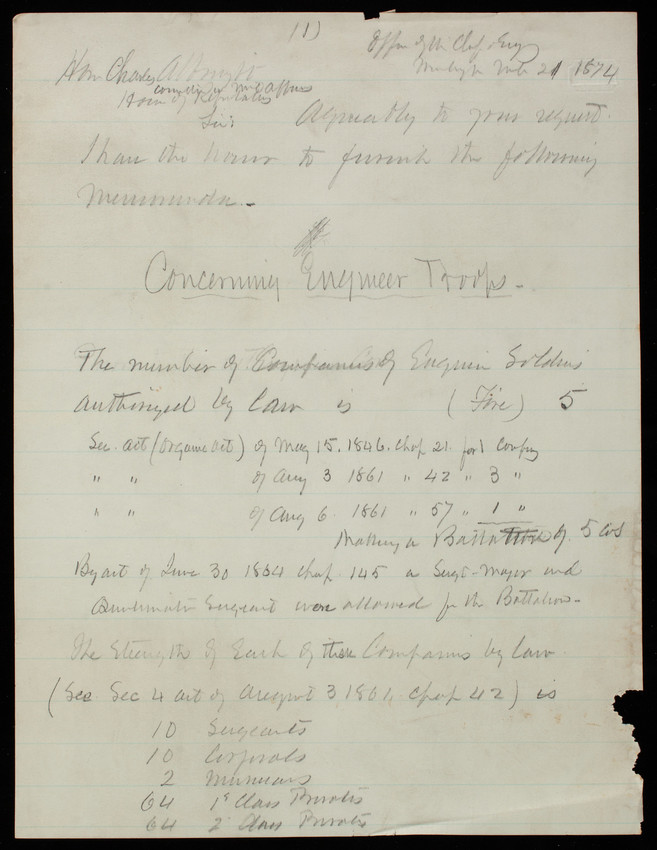 (1)
Office of the Chf Engr
Hon Charles Albright
Washgtn Feb 21 1874
Committee on Mil affairs
House of Reptatives
Sir: Agreeably to your request
I have the honor to furnish the following
Memoranda.-
Concerning Engineer Troops-
The number of Companies of Engineer Soldiers
authorized by law is (Five) 5
See act (organic act) of May 15. 1846. Chap 21. for 1 Company
" " of Aug 3 1861 " 42 " 3 "
" " of Aug 6 1861 " 57 " 1 "
Making a Battalion of 5 Cos
By act of June 30 1864 chap 145 a Sergt-Major and
Quartermaster Sergeant were allowed for the Battalion-
The strength of Each of these Companies by law
(See Sec 4 act of August 3, 1861, chap 42) is
10 Sergeants
10 Corporals
2 Musicians
64 1st Class Privates
64 2 Class Privates